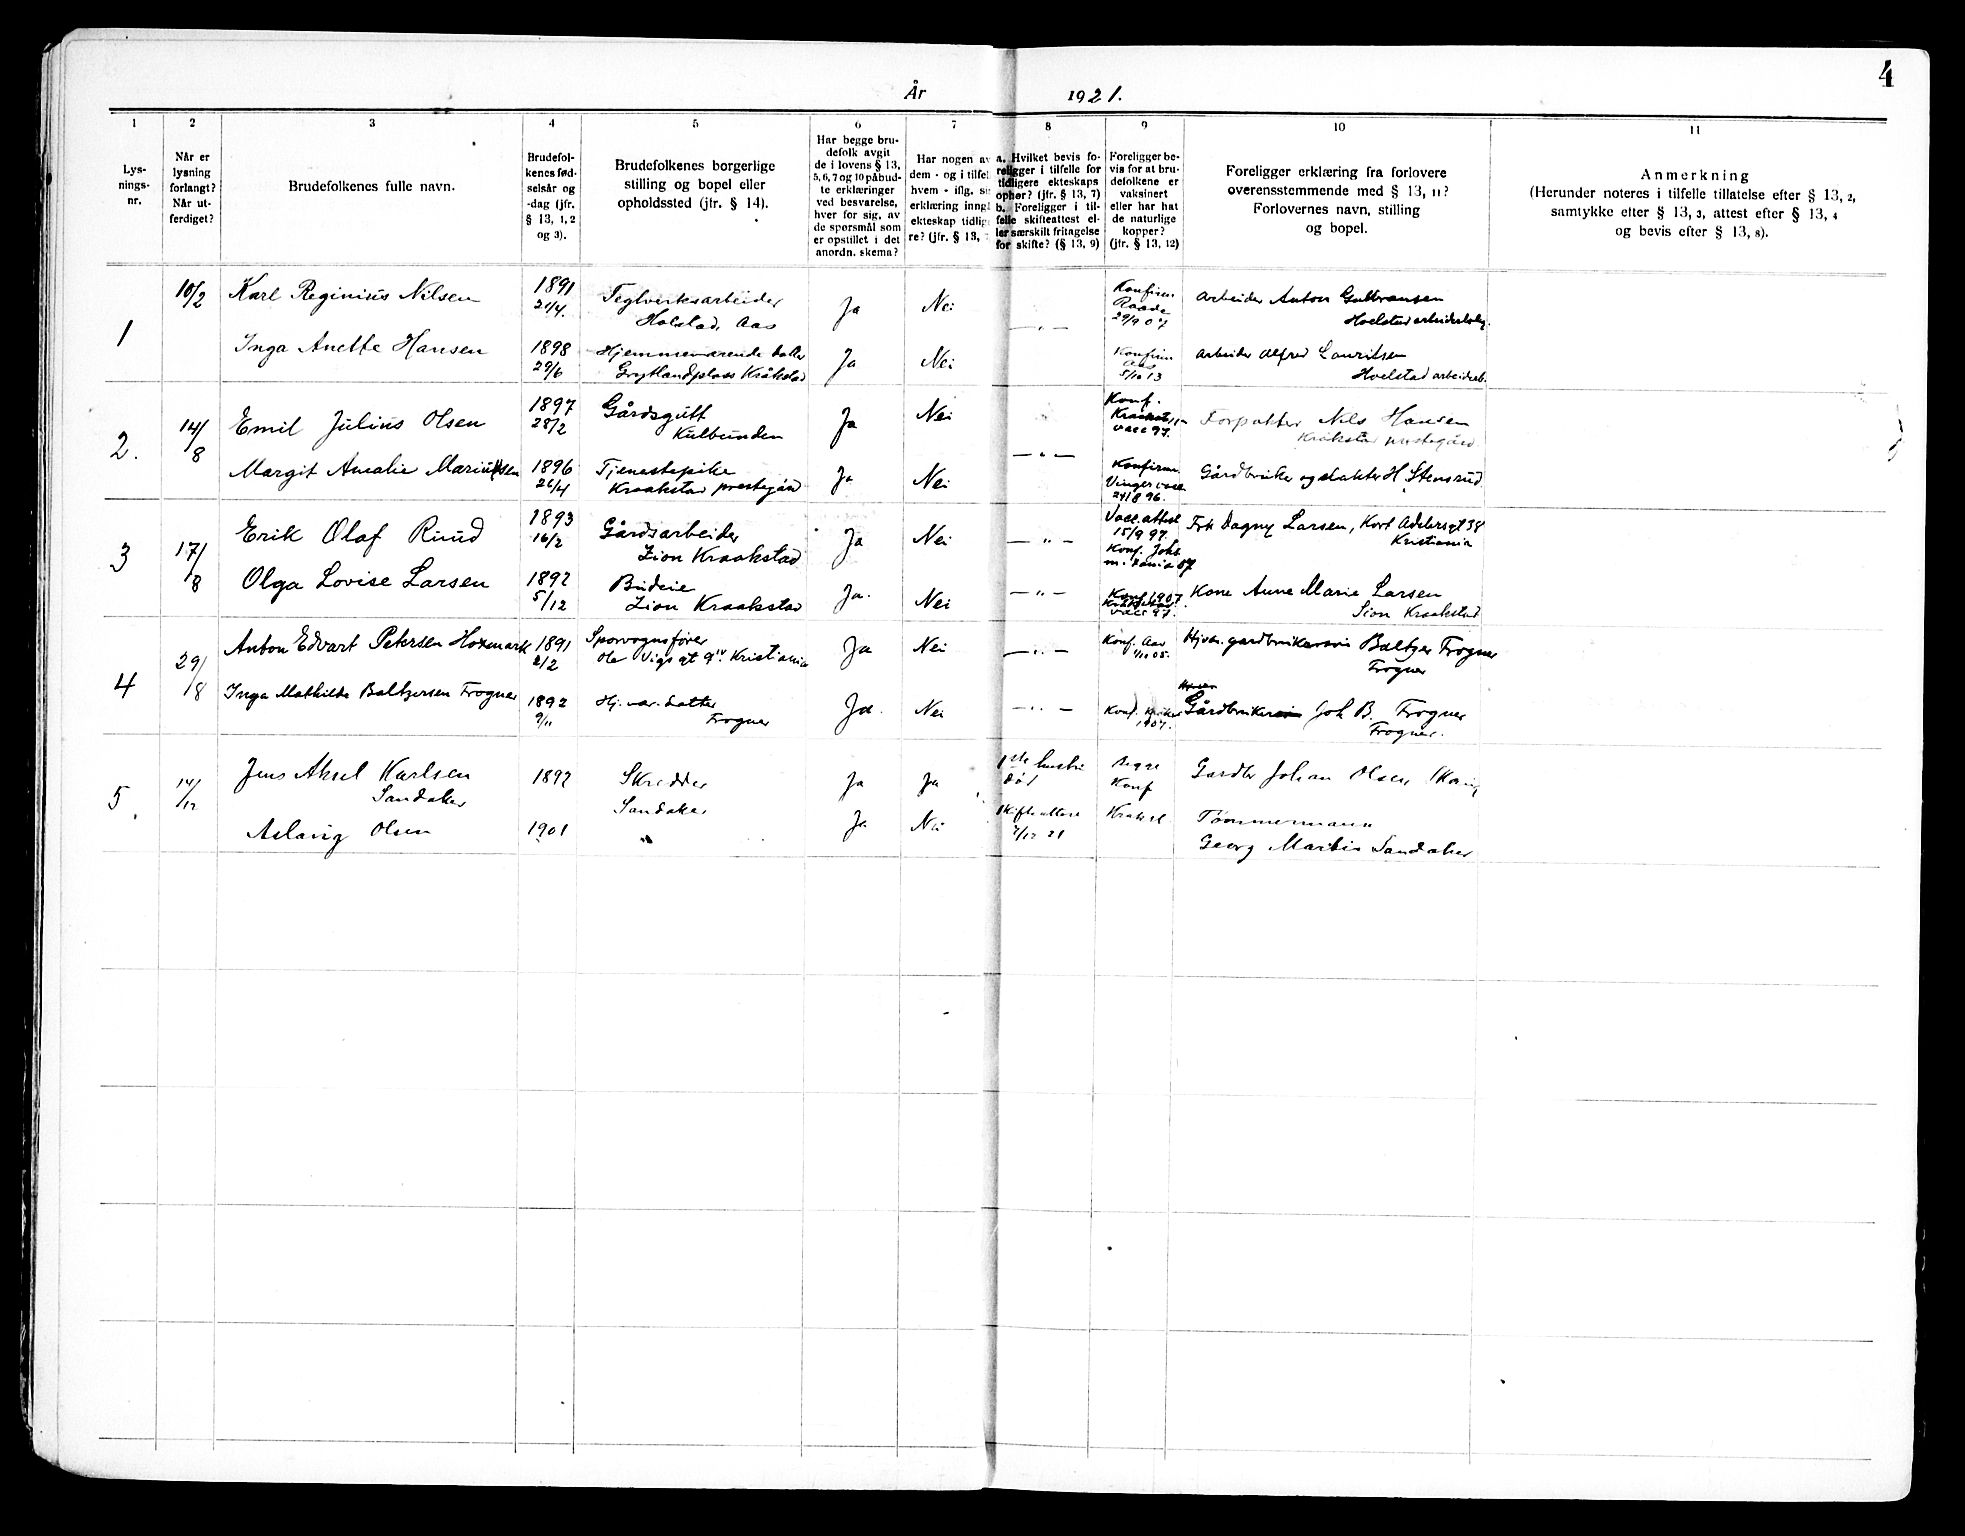 4
År 1921.
1 2 3 4 5 6 7 8 9 10 11
Lys-
nings-
nr.
Når er
lysning
forlangt?
Når ut-
ferdiget?
Brudefolkenes fulle navn.
Brudefol-
kenes fød-
selsår og
-dag (jfr.
§ 13, 1, 2
og 3).
Brudefolkenes borgerlige
stilling og bopel eller
opholdssted (jfr. § 14).
Har begge bru-
defolk avgit
de i lovens § 13,
5, 6, 7 og 10 påbud-
te erklæringer
ved besvarelse,
hver for sig, av
de spørsmål som
er opstillet i det
anordn. skema?
Har nogen av
dem - og i tilfel
hvem - iflg. si
erklæring inng
ekteskap tidlig
re? (jfr. § 13,
a. Hvilket bevis fo-
religger i tilfelle for
tidligere ekteskaps
ophør? (jfr. § 13, 7)
b. Foreligger i til-
felle skifteattest el-
ler særskilt fritagelse
for skifte? (§ 13, 9)
Foreligger be-
vis for at bru-
defolkene er
vaksinert
eller har hat
de naturlige
kopper?
(jfr. § 13, 12)
Foreligger erklæring fra forlovere
overensstemmende med § 13, 11?
Forlovernes navn, stilling
og bopel.
Anmerkning
(Herunder noteres i tilfelle tillatelse efter § 13, 2,
samtykke efter § 13, 3, attest efter § 13, 4
og bevis efter § 13, 8).
1
10/2
Karl Reginius Nilsen
1891
21/4.
Teglverksarbeider
Holstad, Aas
Ja
Nei
— " —
Konfirm
Raade
29/9 07
Arbeider Anton Gulbransen
Holstad arbeiderbolig.
Inga Anette Hansen
1898
29/6
Hjemmeværende datter
Grytlandplass Kråkstad
Ja
Nei
Konfirm
Aas
5/10 13
Arbeider Alfred Lauritsen
Holstad arbeiderb.
2.
14/8
Emil Julius Olsen
1897
28/2
Gårdsgutt
Kulbunden
Ja
Nei
— " —
Konf.
vacc 97.
Forpakter Nils Hansen
Kråkstad prestegård
Margit Amalie Mariussen
1896
26/4
Tjenestepike
Kraakstad prestegård
Ja
Nei
Konfirm.
Vinger vacc
24/8 96.
Gårdbruker og slakter H. Stensrud
3
17/8
Erik Olaf Ruud
1893
16/2
Gårdsarbeider
Zion Kraakstad
Ja
Nei
— " —
Vacc. attest
15/9 97.
Konf. Joh
07
Frk Dagny Larsen, Kort Adelersgt 38
Kristiania
Olga Lovise Larsen
1892
5/12
Budeie
Zion Kraakstad
Ja.
Nei
— " —
Konf 1907.
Kraakstad
vacc 97.
Kone Anne Marie Larsen
Sion Kraakstad
4
29/8
Anton Edvart Petersen Holmark
1891
2/2
Sporvognsfører
Ole Vigs gt 9 IV Kristiania
Ja
Nei
— " —
Konf. Aas
1/10 05.
Hjvær. gardbrukersøn Baltzer Frogner
Frogner
Inga Mathilde Baltzersen Frogner
1892
9/11
Hj. vær. datter
Frogner
Ja.
Nei
— " —
Konf.
1907.
Gårdbruker Joh B. Frogner
Frogner.
5.
14/12
Jens Aksel Karlsen
Sandaker
1892
Skredder
Sandaker
Ja
Ja
1ste hustru
død
Begge
Konf
Gardbr Johan Olsen
Aslaug Olsen
1901
"
Ja
Nei
Skifteattest
7/12 21
Krakst
Tømmermann
Georg Martin Sandaker